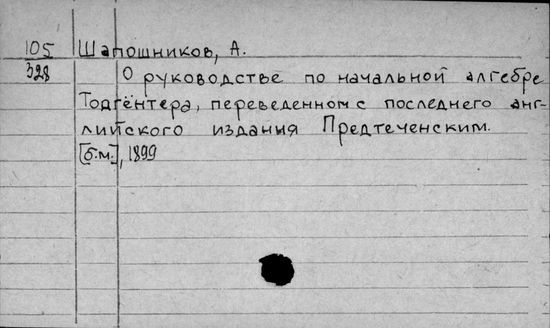 105 Шапошников, А.
328 О руководстве по начальной алгебре
Тодгентера, переведенном с последнего анг-
лийского издания Предтеченским.
[б.м.], 1899